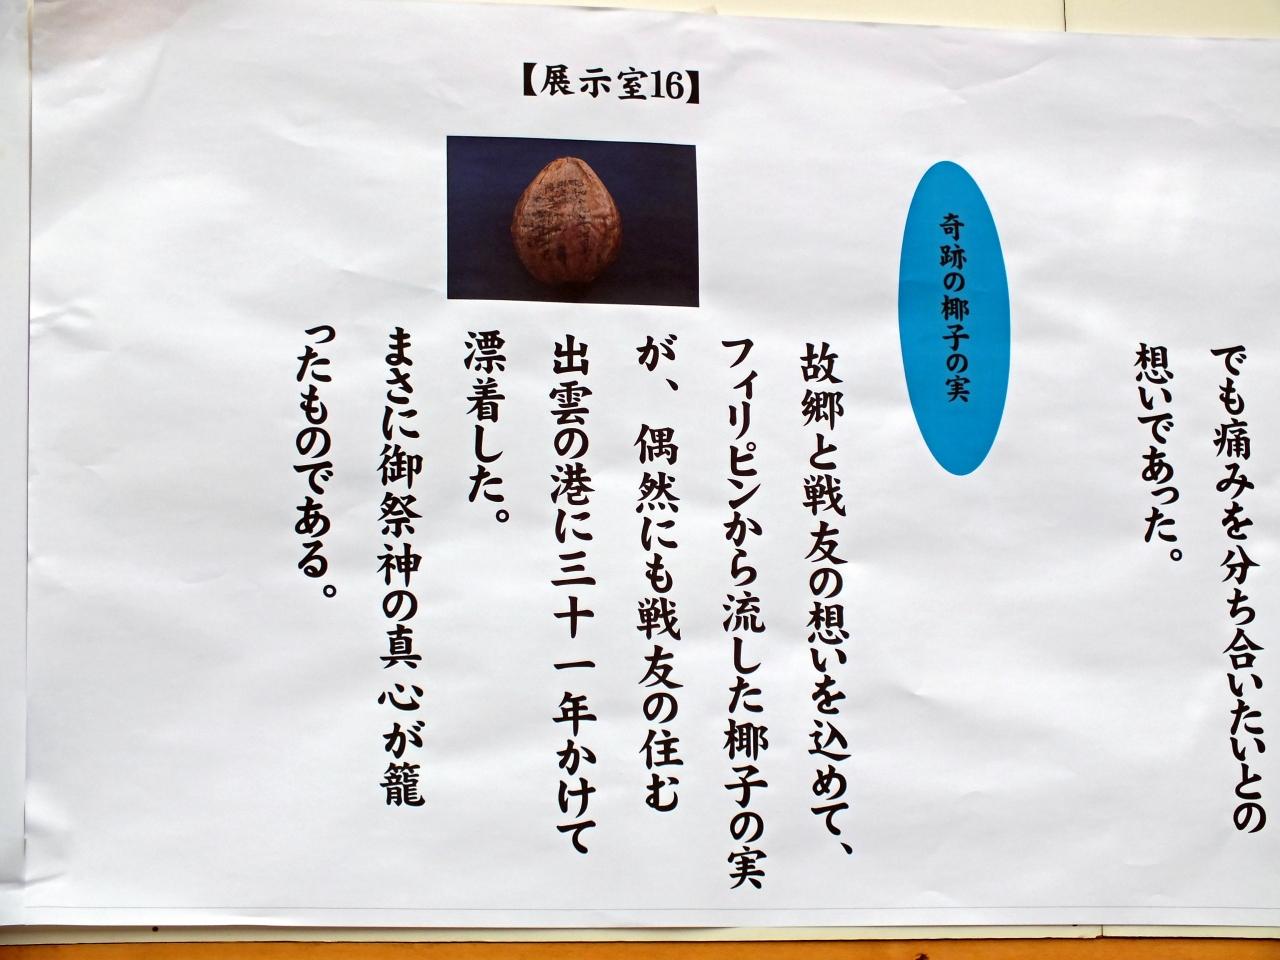 でも痛みを分ち合いたいとの
想いであった。
奇跡の椰子の実
【展示室16】
故郷と戦友の想いを込めて、
フィリピンから流した椰子の実
が、偶然にも戦友の住む
出雲の港に三十一年かけて
漂着した。
まさに御祭神の真心が籠
ったものである。